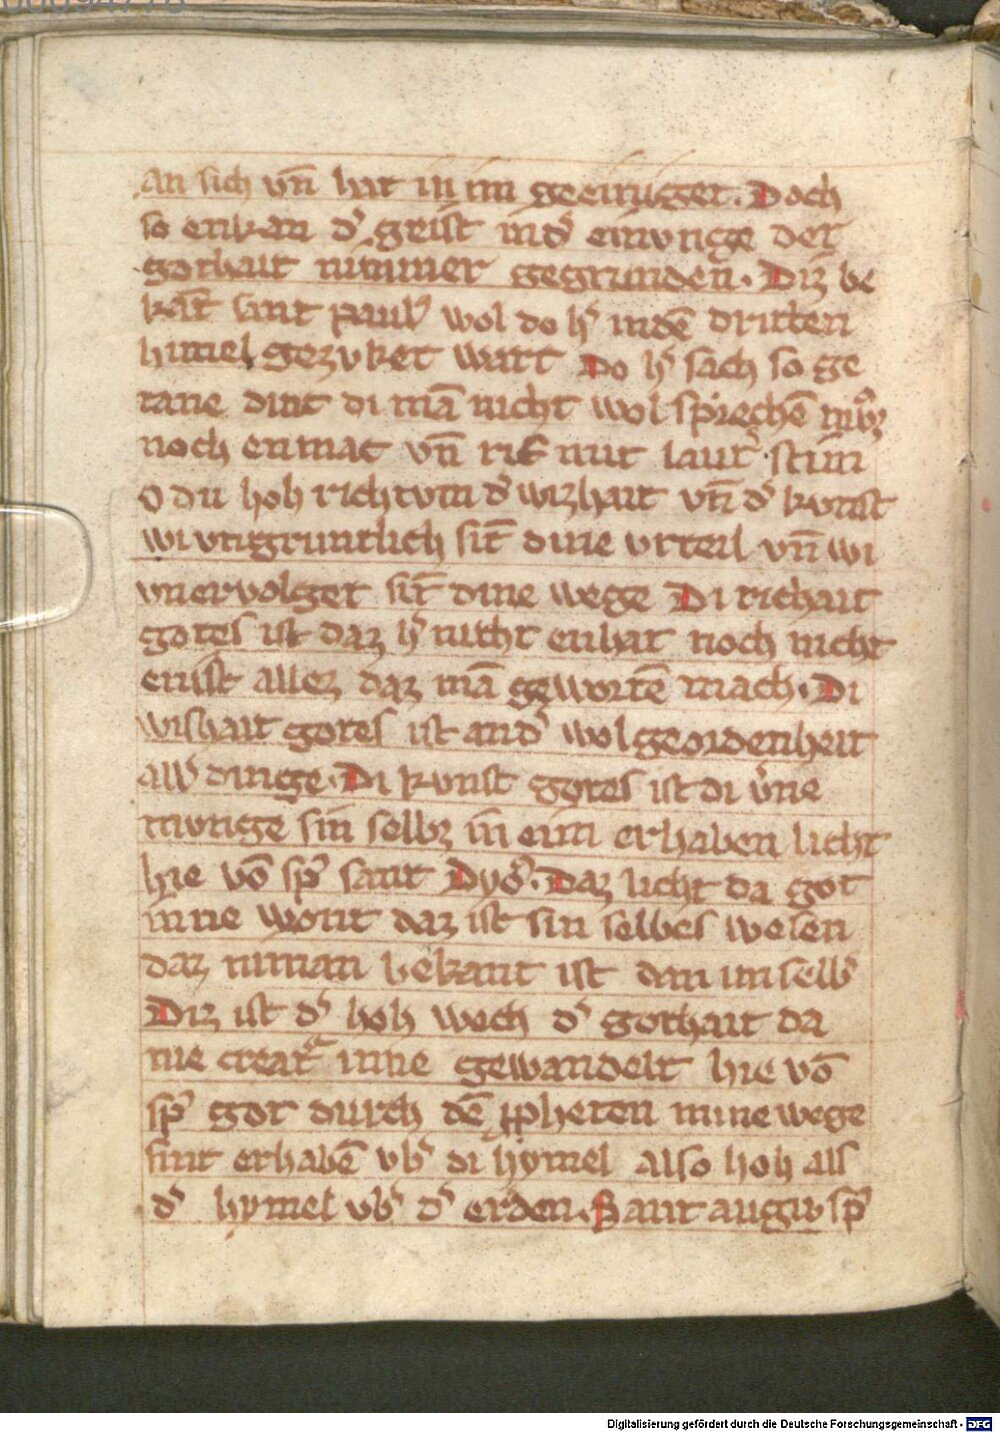 an sich vn̄ hat in im geeiniget. Doch
so enkan d᾽ geist in d᾽ einvnge der
gothait nimmer gegrunden. Diz be
kāt sant Paul᾽ wol do h᾽ in dē dritten
himel gezvket wart Do h᾽ sach so ge
tane dint di mā nicht wol sprechē
noch enmac vn̄ rif mit laut᾽ stim
O du hoh richtvm d᾽ wizhait vn̄ d᾽ kvnst
wi vngruntlich sīt dine vrteil vn̄ wi
vnervolget sīt dine wege Di richait
gotes ist daz h᾽ nicht enhat noch nicht
enist allez daz mā gewortē mach. Di
wishait gotes ist and᾽ wolgeordenheit
all᾽ dinge. Di kvnst gotes ist di v᾽ne
mvnge sin selbz in eim erhaben licht
hie vō sp᾽ sant Dyo᾽. Daz licht da got
inne wont daz ist sin selbes wesen
daz niman bekant ist dan im selb᾽
Diz ist d᾽ hoh wech d᾽ gothait da
nie creat᾽ᵃ inne gewandelt hie vō
sp᾽ got durch dē ꝓpheten mine wege
sint erhabē vb᾽ di hymel also hoh als
d᾽ hymel vb᾽ d᾽ erden. Sant augu᾽ sp᾽
Digitalisierung gefördert durch die Deutsche Forschungsgemeinschaft - DFG